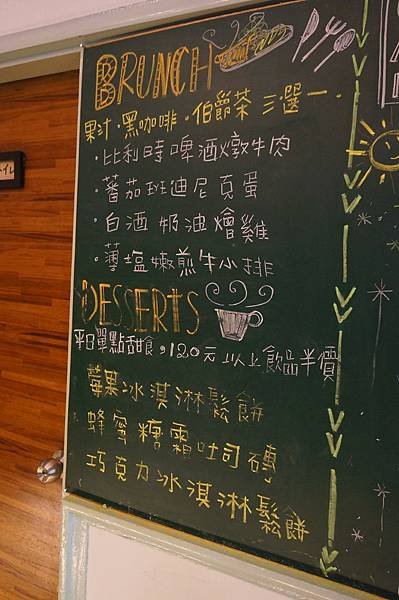 BRUNCH
果汁·黑咖啡·伯爵茶 三選一.
·比利時啤酒燉牛肉
·蕃茄班迪尼克蛋
·白酒奶油燴雞
·薄塩嫩煎牛小排
DESSERTS
平日單點甜食,120元以上飲品半價
莓果冰淇淋鬆餅
蜂蜜糖霜吐司磚
巧克力冰淇淋鬆餅